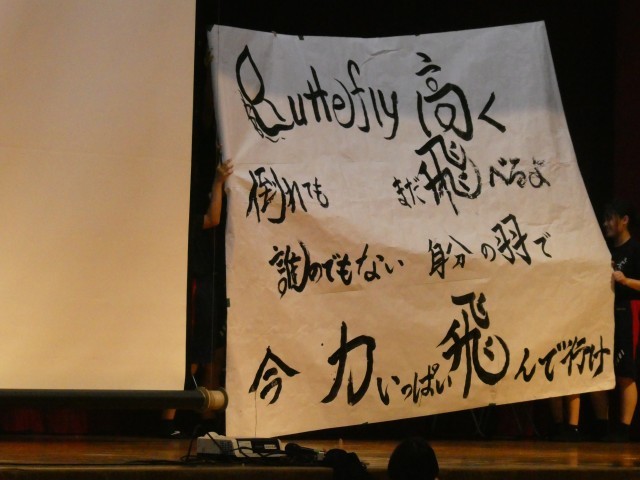 Butterfly 高く
倒れても まだ飛べるよ
誰のでもない 自分の羽で
今 力いっぱい飛んで行け